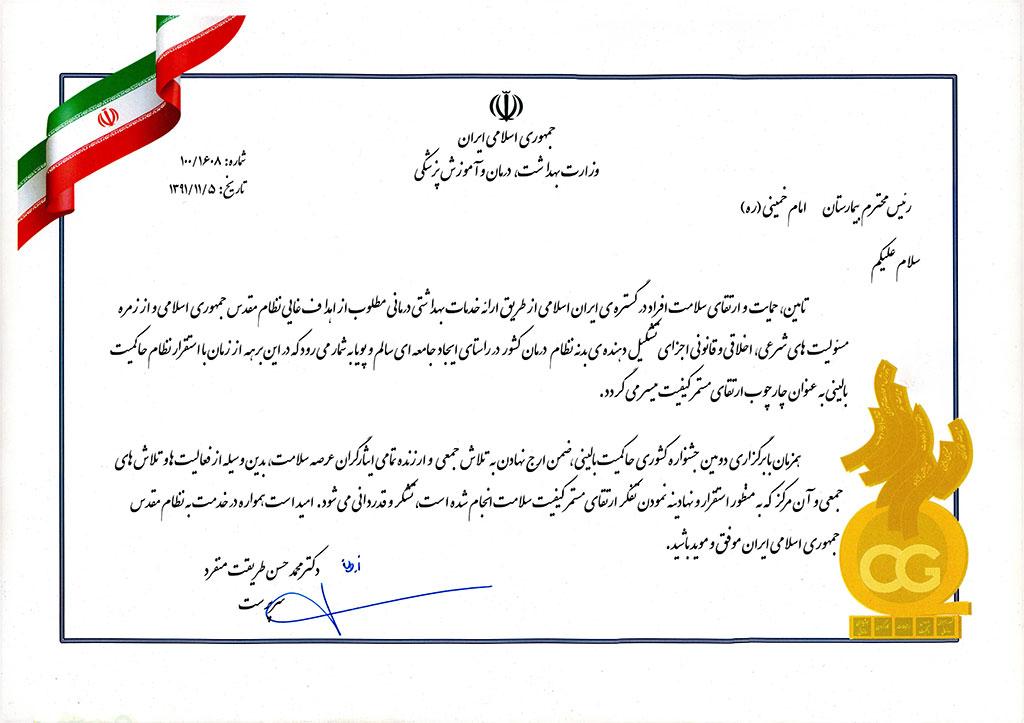 جمهوری اسلامی ایران
وزارت بهداشت، درمان و آموزش پزشکی
شماره: ۱۰۰/۱۶۰۸
تاریخ: ۱۳۹۱/۱۱/۵
رئیس محترم بیمارستان امام خمینی (ره)
سلام علیکم
تامین، حمایت و ارتقای سلامت افراد در گستره ی ایران اسلامی از طریق ارائه خدمات بهداشتی درمانی مطلوب از اهداف غایی نظام مقدس جمهوری اسلامی و از زمره
مسئولیت های شرعی، اخلاقی و قانونی اجزای تشکیل دهنده ی بدنه نظام درمان کشور در راستای ایجاد جامعه ای سالم و پویا به شمار می رود که در این برهه از زمان با استقرار نظام حاکمیت
بالینی به عنوان چارچوب ارتقای مستمر کیفیت میسر می گردد.
همزمان با برگزاری دومین جشنواره کشوری حاکمیت بالینی، ضمن ارج نهادن به تلاش جمعی و ارزنده تمامی ایثارگران عرصه سلامت، بدین وسیله از فعالیت ها و تلاش های
جمعی و آن مرکز که به منظور استقرار و نهادینه نمودن تفکر ارتقای مستمر کیفیت سلامت انجام شده است، تشکر و قدردانی می شود. امید است همواره در خدمت به نظام مقدس
جمهوری اسلامی ایران موفق و موید باشید.
دکتر محمد حسن طریقت منفرد
سرپرست
CG